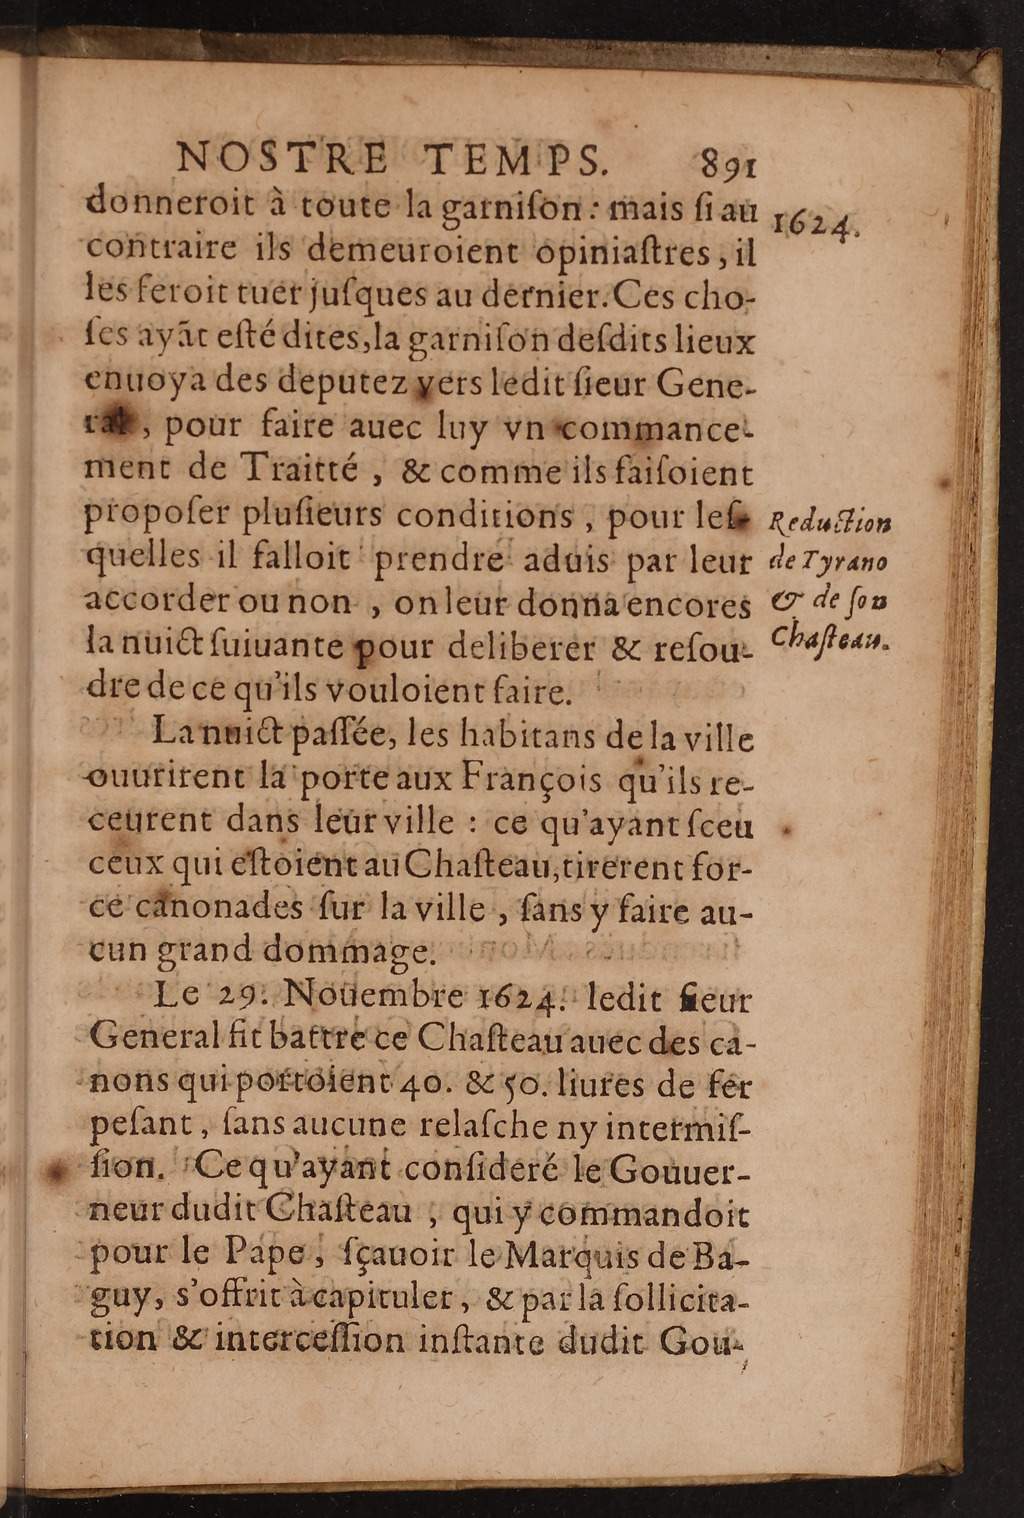 NOSTRE TEMPS. 891
donneroit à toute la garniſon : mais ſi au
1624.
contraire ils demeuroient opiniaſtres, il
les feroit tuer juſques au dernier. Ces cho-
ſes ayāt eſté dites, la garniſon deſdits lieux
enuoya des deputez vers ledit ſieur Gene-
ral, pour faire auec luy vn commance-
ment de Traitté, & comme ils faiſoient
propoſer pluſieurs conditions, pour leſ-
quelles il falloit prendre aduis par leur
accorder ou non, on leur donna encores
la nuict ſuiuante pour deliberer & reſou-
dre de ce qu'ils vouloient faire.
Reduction
de Tyrano
& de ſon
Chaſteau.
La nuict paſſée, les habitans de la ville
ouurirent la porte aux François qu'ils re-
ceurent dans leur ville : ce qu'ayant ſceu
ceux qui eſtoient au Chaſteau, tirerent for-
ce canonades ſur la ville, ſans y faire au-
cun grand dommage.
Le 29. Nouembre 1624. ledit ſieur
General fit battre ce Chaſteau auec des ca-
nons qui portoient 40. & 50. liures de fer
peſant, ſans aucune relaſche ny intermiſ-
ſion. Ce qu'ayant conſideré le Gouuer-
neur dudit Chaſteau, qui y commandoit
pour le Pape, ſçauoir le Marquis de Ba-
guy, s'offrit à capituler, & par la ſollicita-
tion & interceſſion inſtante dudit Gou-